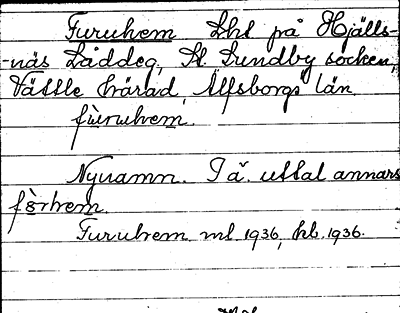 Furuhem Lht på Hjälls-
-näs Låddeg, St. Lundby socken,
Vättle härad, Älfsborgs län.
fùruhem.
Nynamn. I ä. uttal annars
fòrhem.
Furuhem ml. 1936, hb. 1936.